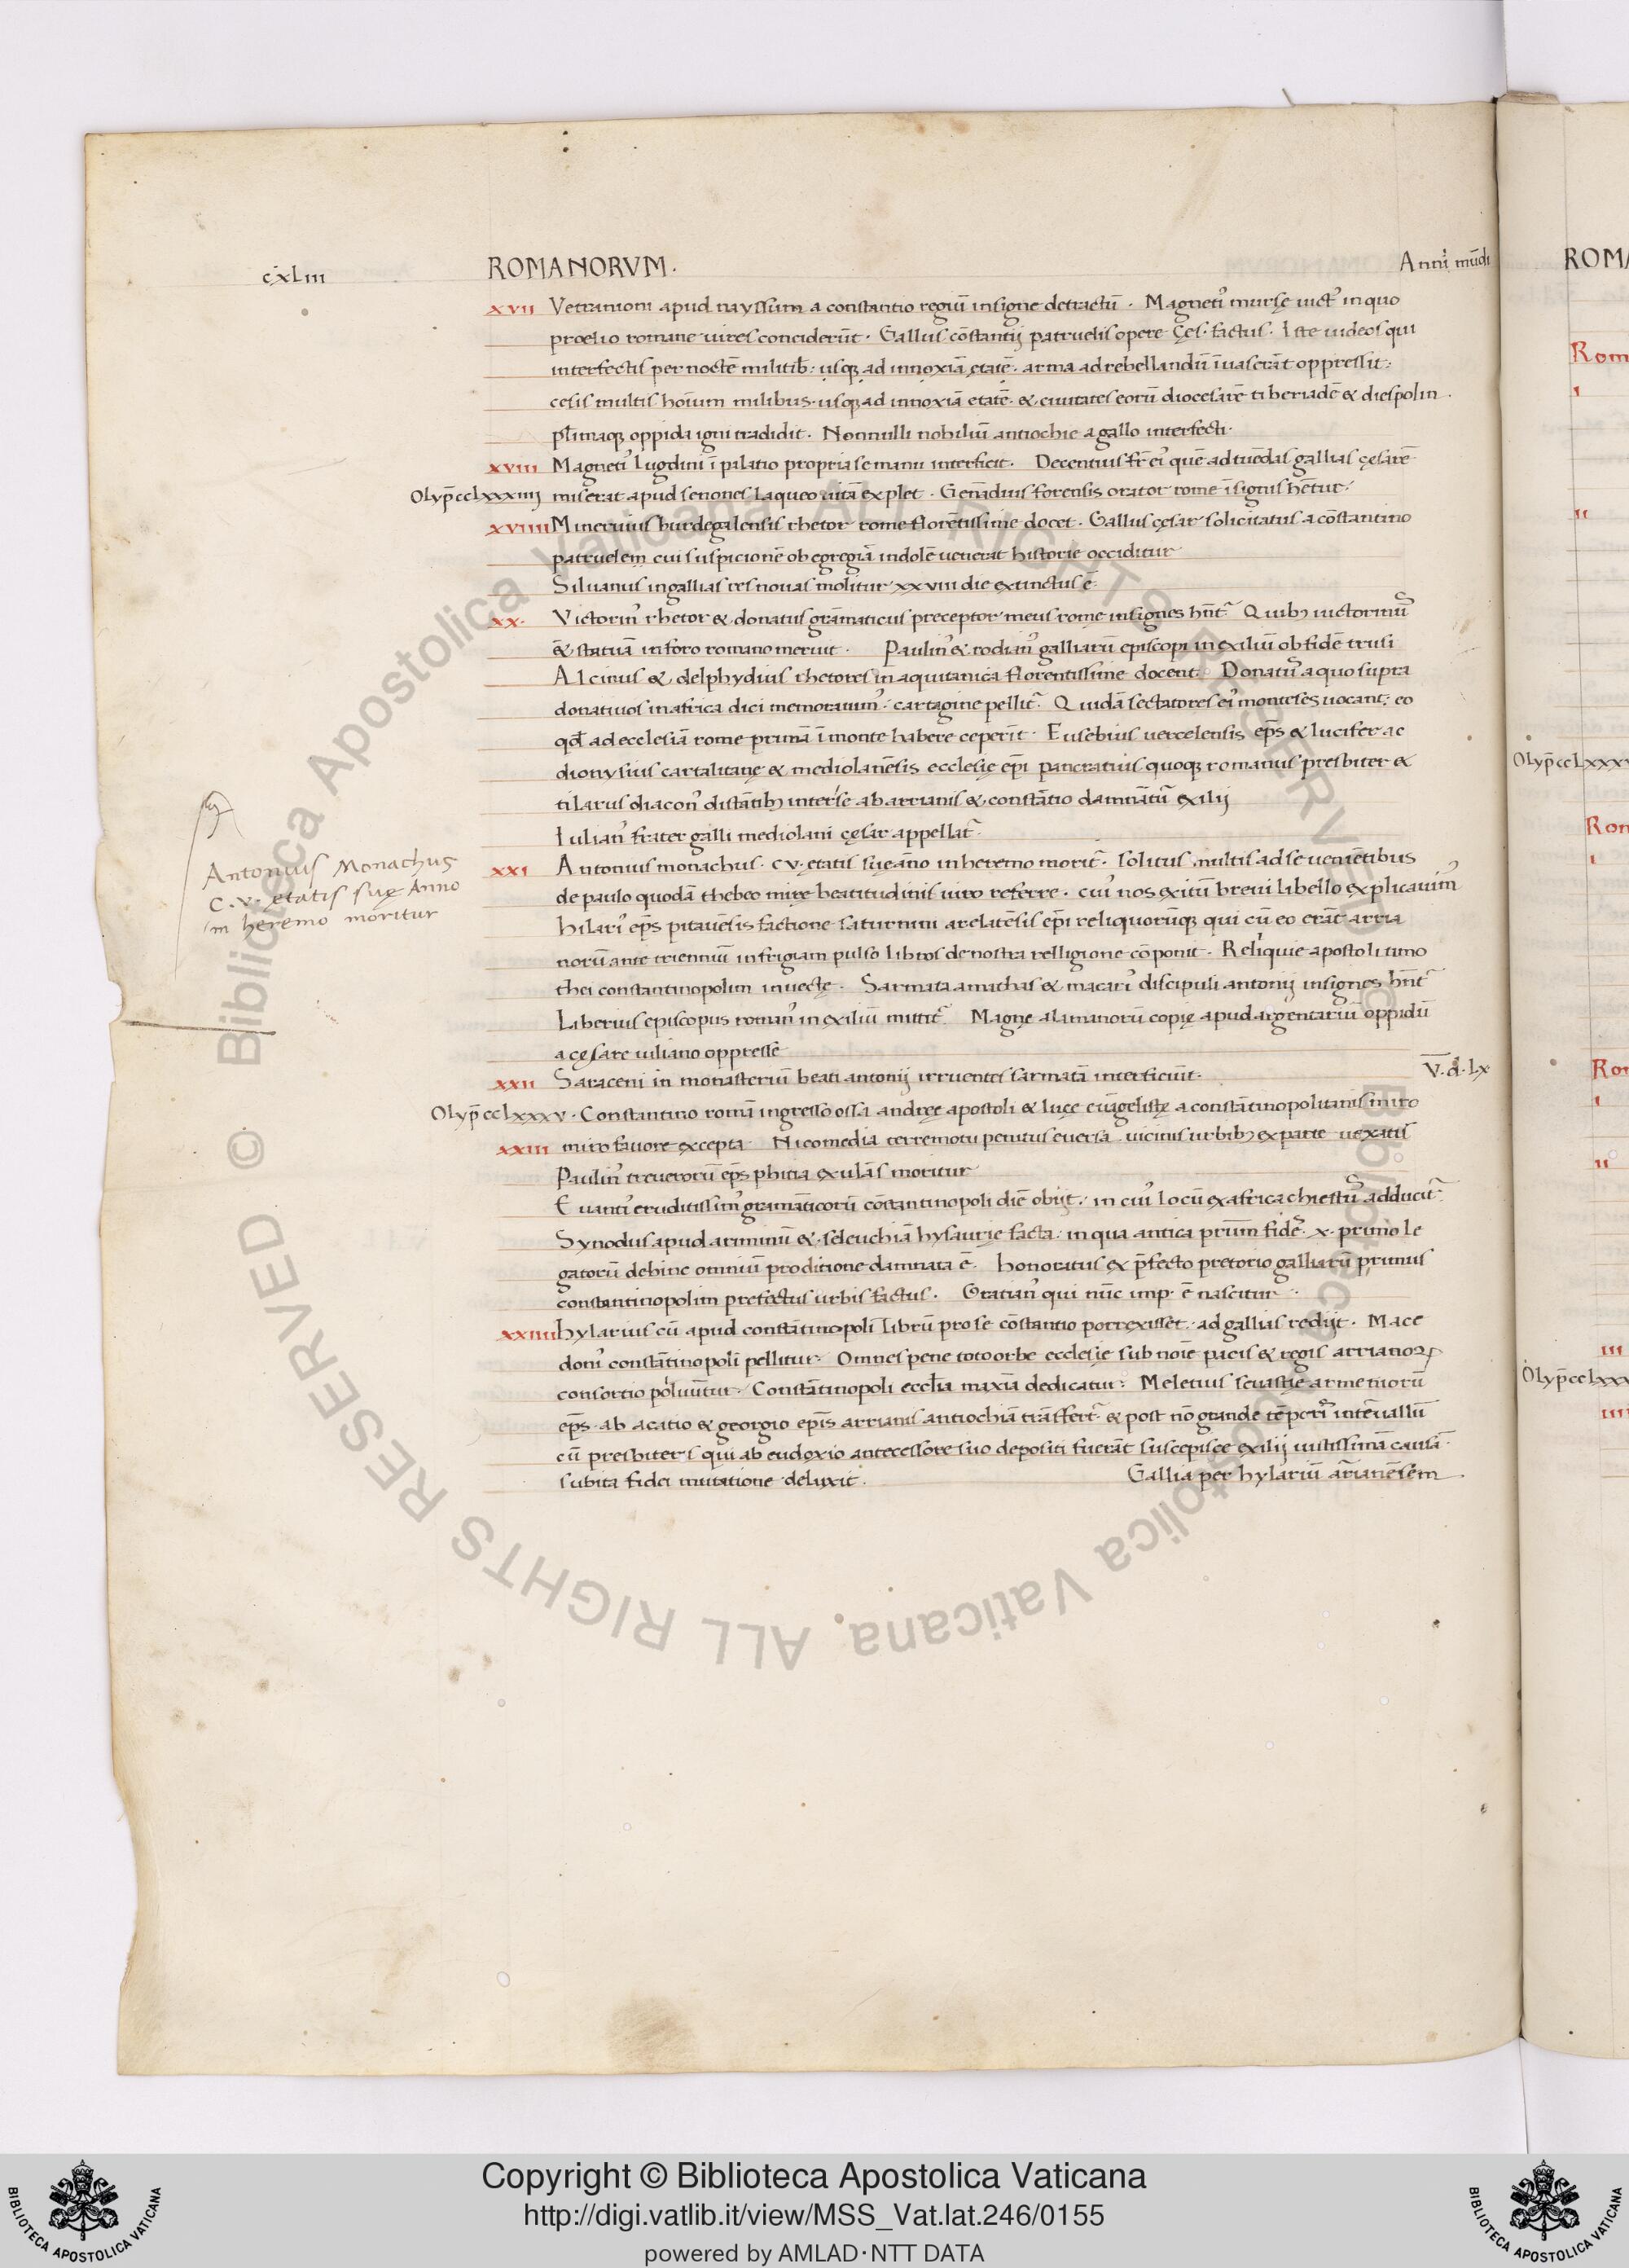 cxLiii
ROMANORVM.
Anni mūdi
xvii Vetranioni apud nayssum a constantio regiū insigne detractū. Magneti᾽ mursę uict᾽ in quo
proelio romane uires conciderūt. Gallus cōstantij patruelis opere Çęs. factus. Iste iudeos qui
interfectis per noctē militib᾽: usq; ad innoxiā ętatē. arma ad rebellandū īuaserāt oppressit:
cesis multis hoīum milibus. usq; ad innoxiā etatē. & ciuitates eorū diocesarē tiberiadē & diespolin.
pl̄imaq; oppida igni tradidit. Nonnulli nobiliū antiochie a gallo interfecti.
xviii Magneti᾽ lugdini ī palatio propria se manu interficit. Decentius fr̄ ei᾽ quē ad tuēdas gallias çęsarē
Olyp̄ ccLxxxiiij miserat apud senones laqueo uitā explet. Genādius forensis orator rome īsignis hētur.
xviiii Mineruius burdegalensis rhetor rome florētissime docet. Gallus çęsar solicitatus a cōstantino
patruelem cui suspicionē ob egregiā indolē uenerat historie occiditur
Siluanus in gallias res nouas molitur xxviii die extinctus ē.
xx. Victorin᾽ rhetor & donatus grāmaticus preceptor meus rome insignes hn̄t᾽ Quib; uictorinu᾽
& statuā in foro romano meruit. Paulin᾽ & rodian᾽ galliarū episcopi in exiliū ob fidē trusi
Alcinus & delphydius rhetores in aquitanica florentissime docent. Donatu᾽ a quo supra
donatiuos in africa dici memoratum᾽. cartagine pellit᾽. Quidā sectatores ei᾽ montēses uocant: eo
qd̄ ad ecclesiā rome primā ī monte habere ceperīt. Eusebius uercelensis ep̄s & lucifer ac
dionysius cartalitanę & mediolanēsis ecclesię ep̄i pancratius quoq; romanus presbiter &
tilarus diacon᾽ distātib; inter se ab arrianis & constātio damnātu᾽ exilij
Iulian᾽ frater galli mediolani çęsar appellat᾽.
xxi Antonius monachus. cv. etatis suę āno in heremo morit᾽. solitus multis ad se ueniētibus
de paulo quodā thebeo mire beatitudinis uiro referre. cui᾽ nos exitū breui libello explicauim᾽
hilari᾽ ep̄s pitauēsis factione saturnini arelatēsis ep̄i reliquorūq; qui cū eo erāt arria
norū ante trienniū in frigiam pulso libros de nostra relligione cōponit. Reliquie apostoli timo
thei constantinopolim inuectę. Sarmata amathas & macari᾽ discipuli antonij insignes hn̄t᾽
Liberius episcopus roman᾽ in exiliū mittit᾽ Magnę alamanorū copię apud argentariū oppidū
a çęsare iuliano oppresse
xxii Saraceni in monasteriū beati antonij irruentes sarmatā interficiūt.
V̄.d.lx
Olyp̄ ccLxxxv. Constantino romā ingresso ossa andręe apostoli & lucę euāgelistę a constātinopolitanis miro
xxiii miro fauore excepta. Nicomedia terremotu penitus euersa uicinis urbib; ex parte uexatis
Paulin᾽ treuerorū ep̄s phitia exulās moritur
Euanti᾽ eruditissim᾽ gramāticorū cōstantinopoli diē obijt. in cui᾽ locū ex africa chrestu᾽ adducit᾽
Synodus apud ariminū & seleuchiā hysaurię facta. in qua antica prūm fide᾽. x. primo le
gatorū dehinc omniū proditione damnata ē. honoratus ex p̄fecto pretorio galliarū primus
constantinopolim prefectus urbis factus. Gratian᾽ qui nūc imp. ē nascitur.
xxiiii hylarius cū apud constātinopolī librū pro se cōstantio porrexisset. ad gallias redijt. Mace
doni᾽ constātinopolī pellitur. Omnes pene toto orbe ecclesię sub noīe pacis & regis arrianoꝝ
consortio poluūtur. Constātinopoli eccl̄ia maxīa dedicatur: Meletius seuastię armeniorū
ep̄s. ab acatio & georgio ep̄is arrianis antiochiā trāsfert᾽ & post nō grande tēpori᾽ interuallū
cū presbiteri qui ab eudoxio antecessore suo depositi fuerāt suscepisse exilij iustissimā causā.
subita fidei mutatione deluxit. Gallia per hylariū arianēsem
Antonius Monachus
C.V. ętatis suę Anno
in heremo moritur
ROMA
Rom
i
ii
Olyp̄ ccLxxxv
Rom
i
Rom
i
ii
iii
Olyp̄ ccLxxx
iiii
Copyright © Biblioteca Apostolica Vaticana
http://digi.vatlib.it/view/MSS_Vat.lat.246/0155
powered by AMLAD·NTT DATA
BIBLIOTECA APOSTOLICA VATICANA
BIBLIOTECA APOSTOLICA VATICANA
© Biblioteca Apostolica Vaticana ALL RIGHTS RESERVED
© Biblioteca Apostolica Vaticana. ALL RIGHTS RESERVED